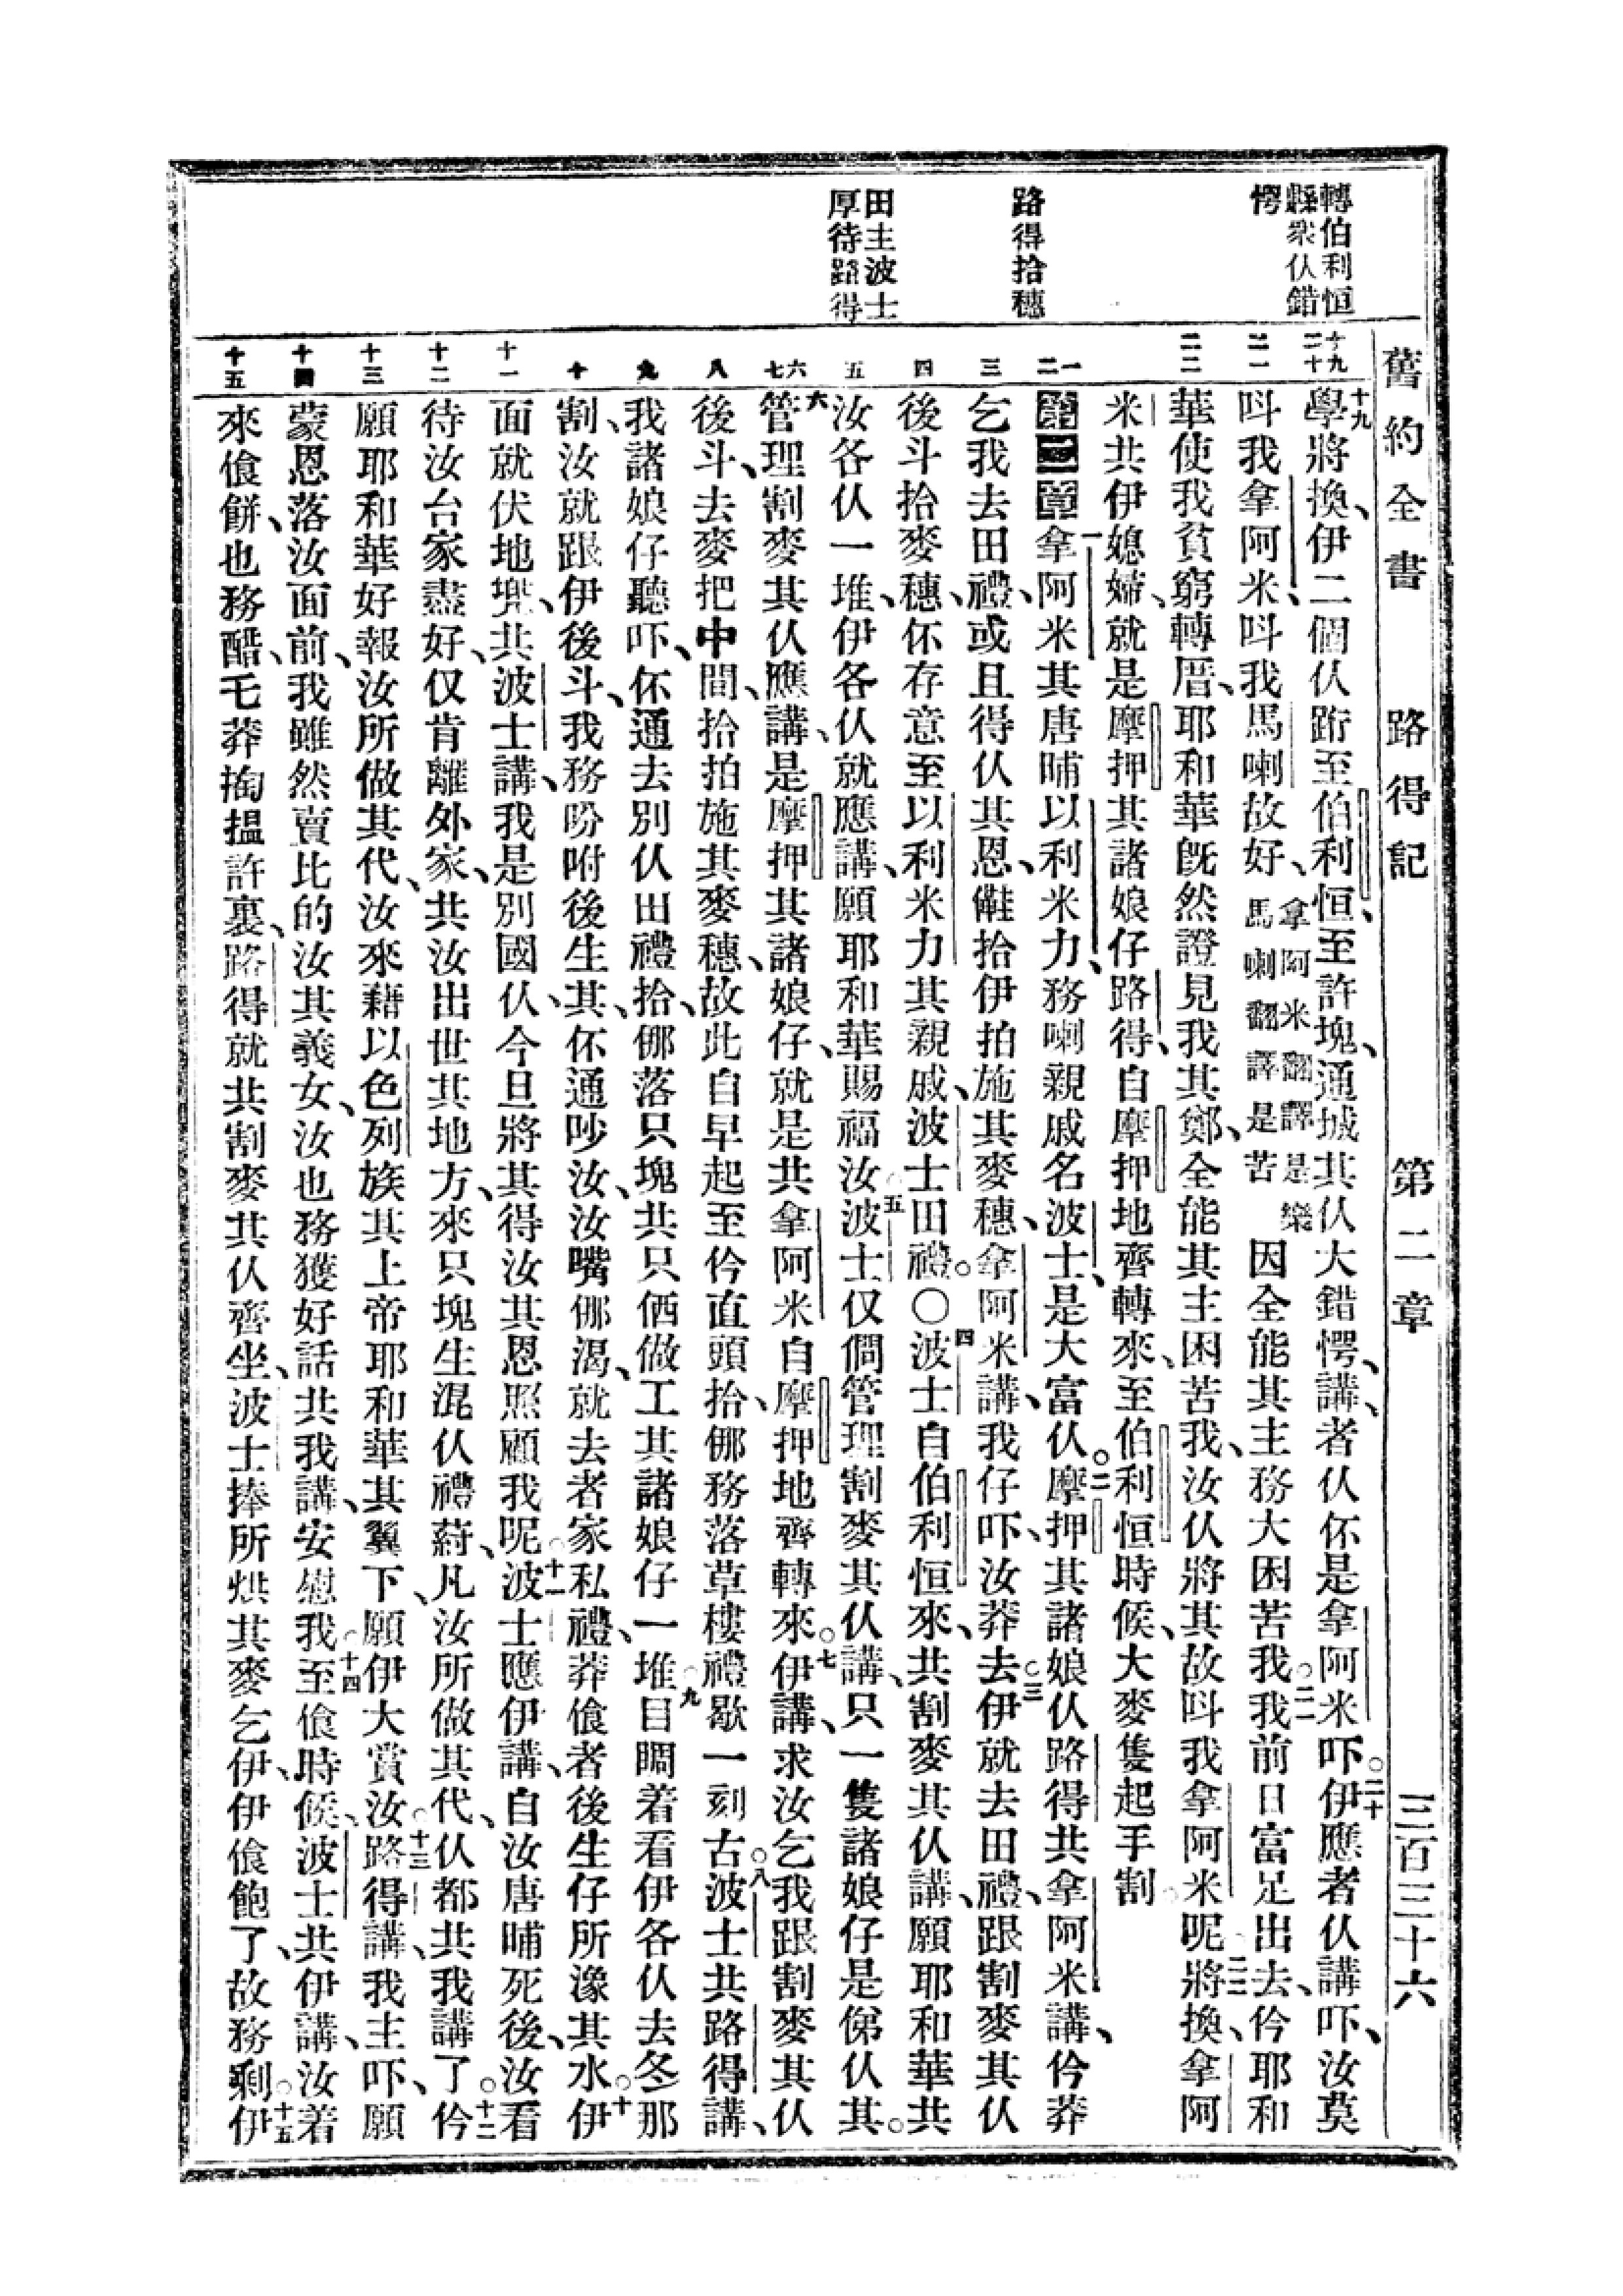 舊約全書 路得記 第二章 三百三十六
轉伯利恒
縣衆仈錯
愕
路得拾穗
田主波士
厚待路得
十九
二十
二一
二二
一
二
三
四
五
六
七
八
九
十
十一
十二
十三
十四
十五
十九學將換、伊二個仈跕至伯利恒、至許塊、通城其仈大錯愕、講、者仈伓是拿阿米吓。二十伊應者仈講吓、汝莫
呌我拿阿米、呌我馬喇故好、拿阿米翻譯是樂馬喇翻譯是苦因全能其主務大困苦我。二一我前日富足出去、仱耶和
華使我貧窮轉厝、耶和華旣然證見我其鄭、全能其主困苦我、汝仈將其故呌我拿阿米呢。二二將換、拿阿
米共伊媳婦、就是摩押其諸娘仔路得、自摩押地齊轉來、至伯利恒時候、大麥隻起手割
第二章一拿阿米其唐晡以利米力、務喇親戚名波士、是大富仈。二摩押其諸娘仈路得共拿阿米講、仱莽
乞我去田禮、或且得仈其恩、儺拾伊拍施其麥穗、拿阿米講、我仔吓、汝莽去。三伊就去田禮、跟割麥其仈
後斗拾麥穗、伓存意至以利米力其親戚、波士田禮。〇四波士自伯利恒來、共割麥其仈講、願耶和華共
汝各仈一堆、伊各仈就應講、願耶和華賜福汝。五波士仅問管理割麥其仈講、只一隻諸娘仔是俤仈其。
六管理割麥其仈應講、是摩押其諸娘仔、就是共拿阿米自摩押地齊轉來。七伊講、求汝乞我跟割麥其仈
後斗、去麥把中間、拾拍施其麥穗、故此自早起至仱直頭拾、㑚務落草樓禮歇一刻古。八波士共路得講、
我諸娘仔聽吓、伓通去別仈田禮拾、㑚落只塊共只㑚做工其諸娘仔一堆。九目睭着看伊各仈去冬那
割、汝就跟伊後斗、我務吩咐後生其、伓通吵汝、汝嘴㑚渴、就去者家私禮、莽飡者後生仔所㵃其水。十伊
面就伏地兜、共波士講、我是別國仈、今旦將其得汝其恩照顧我呢。十一波士應伊講、自汝唐晡死後、汝看
待汝台家盡好、仅肯離外家、共汝出世其地方、來只塊生混仈禮蒔、凡汝所做其代、仈都共我講了。十二仱
願耶和華好報汝所做其代、汝來藉以色列族其上帝耶和華其翼下、願伊大賞汝。十三路得講、我主吓、願
蒙恩落汝面前、我雖然賣比的汝其義女、汝也務獲好話共我講、安慰我。十四至飡時候、波士共伊講、汝着
來飡餅、也務酷、乇莽掏揾許裏、路得就共割麥其仈齊坐、波士捧所烘其麥乞伊、伊飡飽了、故務剩。十五伊